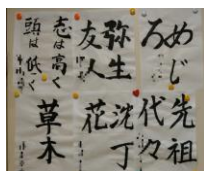 めじろ
先祖代々
弥生
友人
沈丁花
志は高く
頭は低く
草木